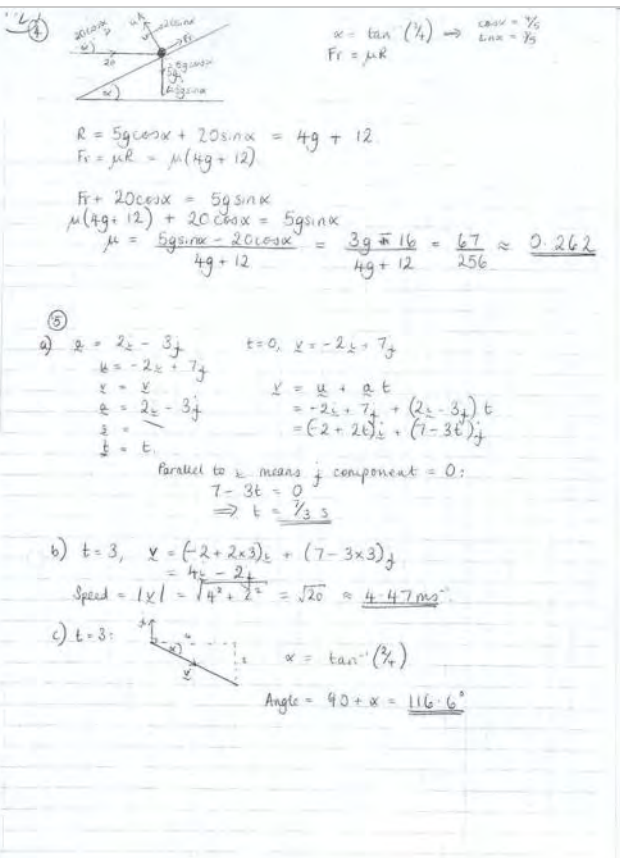 ④
20cosα
20sinα
R
Fr
α
20
5gcosα
5g
5gsinα
α
α = tan⁻¹(3/4) ⇒ cosα = 4/5
sinα = 3/5
Fr = μR
R = 5gcosα + 20sinα = 4g + 12
Fr = μR = μ(4g + 12)
Fr + 20cosα = 5gsinα
μ(4g + 12) + 20cosα = 5gsinα
μ = (5gsinα - 20cosα)/(4g + 12) = (3g - 16)/(4g + 12) = 67/256 ≈ 0.262
⑤
a) a = 2i - 3j t=0, v = -2i + 7j
u = -2i + 7j
v = v v = u + at
a = 2i - 3j = -2i + 7j + (2i - 3j)t
s = — = (-2 + 2t)i + (7 - 3t)j
t = t.
Parallel to i means j component = 0:
7 - 3t = 0
⇒ t = 7/3 s
b) t = 3, v = (-2 + 2×3)i + (7 - 3×3)j
= 4i - 2j
Speed = |v| = √(4² + 2²) = √20 ≈ 4.47ms⁻¹
c) t = 3:
j
4
α
2
v
α = tan⁻¹(2/4)
Angle = 90 + α = 116.6°